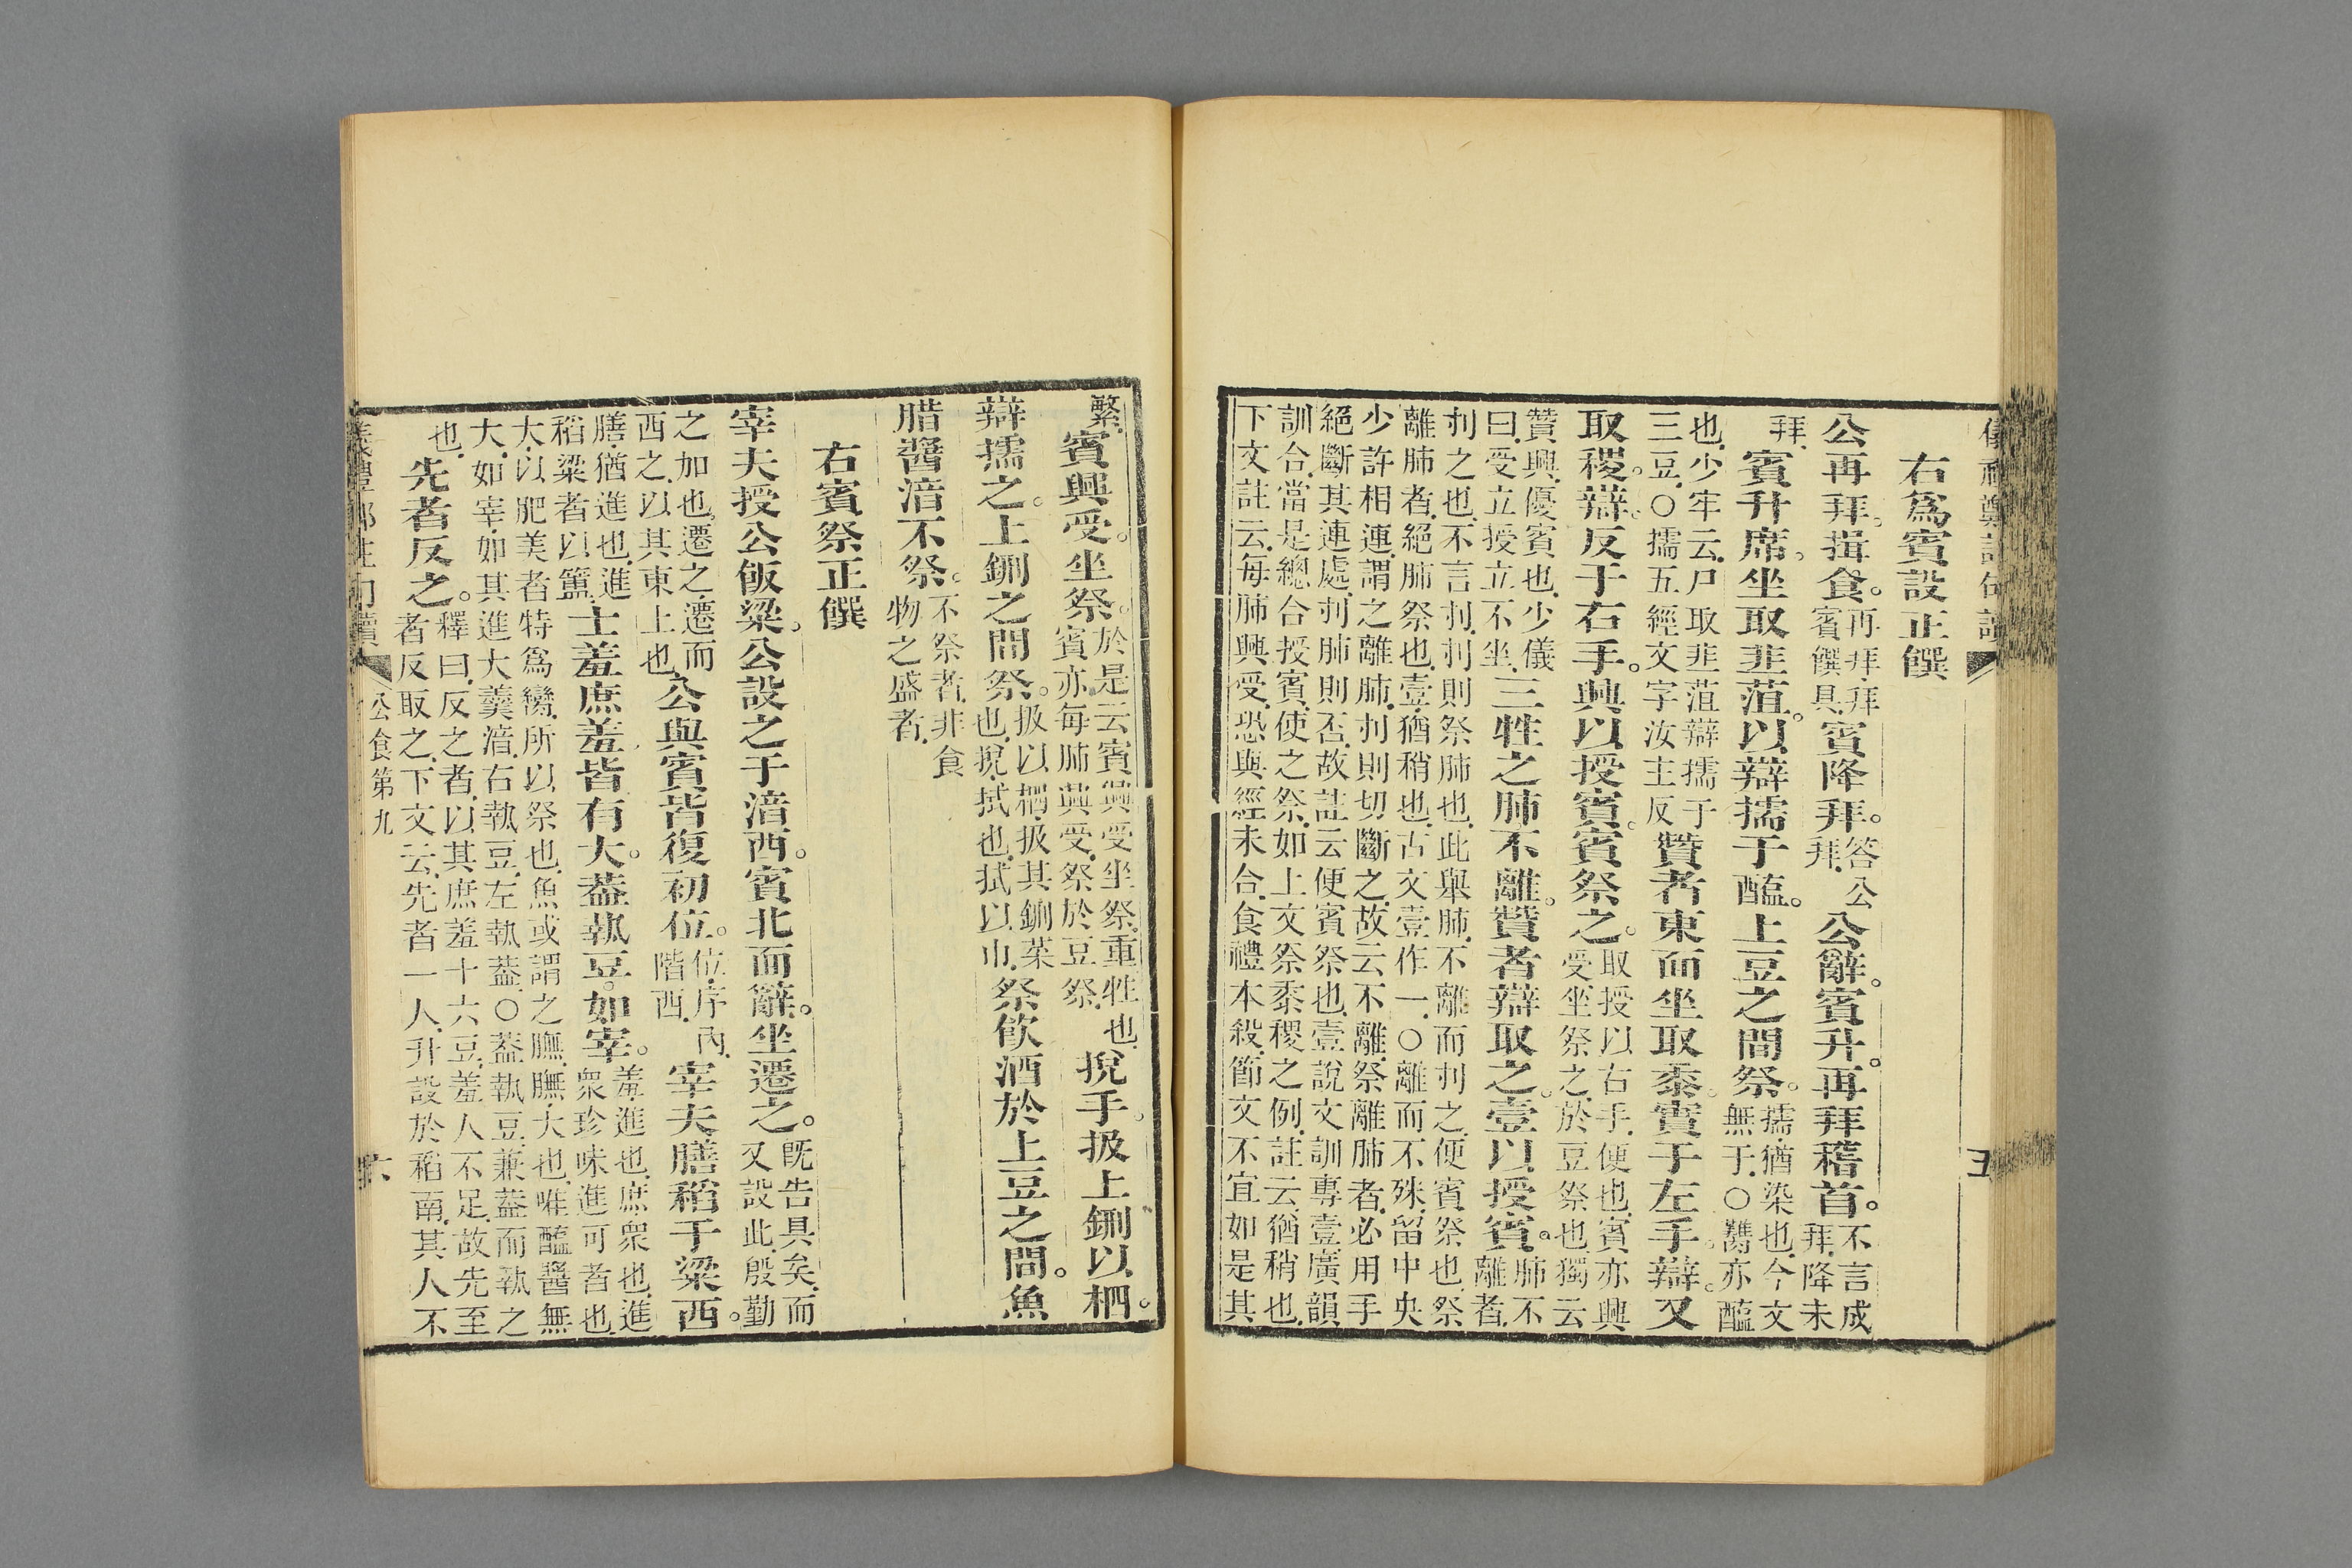 儀禮鄭註句讀 五
右爲賓設正饌
公再拜。揖食。再拜拜賓饌具賓降拜。答公拜公辭。賓升。再拜稽首。不言成拜降未
拜賓升席。坐取韭菹。以辯擩于醢。上豆之間祭。擩猶染也今文無于○臡亦醢
也少牢云尸取韭菹辯擩于三豆○擩五經文字汝主反贊者東面坐取黍。實于左手。辯。又
取稷。辯。反于右手。興以授賓。賓祭之。取授以右手便也賓亦興受坐祭之於豆祭也獨云
贊興優賓也少儀曰受立授立不坐三牲之肺不離。贊者辯取之。壹以授賓。肺不離者
刌之也不言刌刌則祭肺也此舉肺不離而刌之便賓祭也祭
離肺者絕肺祭也壹猶稍也古文壹作一○離而不殊留中央
少許相連謂之離肺刌則切斷之故云不離祭離肺者必用手
絕斷其連處刌肺則否故註云便賓祭也壹說文訓專壹廣韻
訓合當是總合授賓使之祭如上文祭黍稷之例註云猶稍也
下文註云每肺興受恐與經未合食禮本殺節文不宜如是其
繁賓興受。坐祭。於是云賓興受坐祭重牲也賓亦每肺興受祭於豆祭挩手。扱上鉶以柶。
辯擩之。上鉶之間祭。扱以柶扱其鉶菜也挩拭也拭以巾祭飲酒於上豆之間。魚
腊醬湆不祭。不祭者非食物之盛者
右賓祭正饌
宰夫授公飯粱。公設之于湆西。賓北面辭。坐遷之。既告具矣而又設此殷勤
之加也遷之遷而西之以其東上也公與賓皆復初位。位序內階西宰夫膳稻于粱西。
膳猶進也進稻粱者以簠士羞庶羞皆有大。蓋執豆。如宰。羞進也庶眾也進眾珍味進可者也
大以肥美者特爲臠所以祭也魚或謂之膴膴大也唯醢醬無
大如宰如其進大羹湆右執豆左執蓋○蓋執豆兼蓋而執之
也先者反之。釋曰反之者以其庶羞十六豆羞人不足故先至者反取之下文云先者一人升設於稻南其人不
儀禮鄭註句讀 公食第九 六